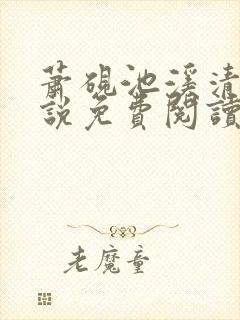 蕭硯池溪清
說免費閱讀
老魔童